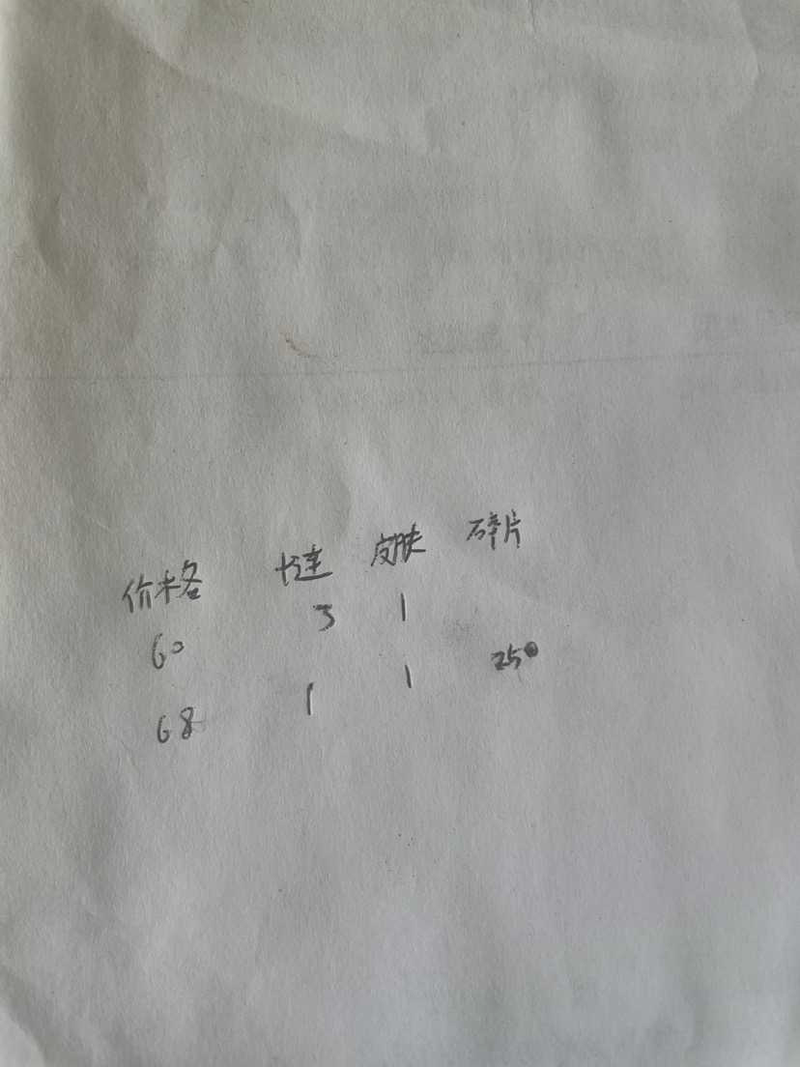 价格 皮肤 碎片
60 3 1
68 1 1 25